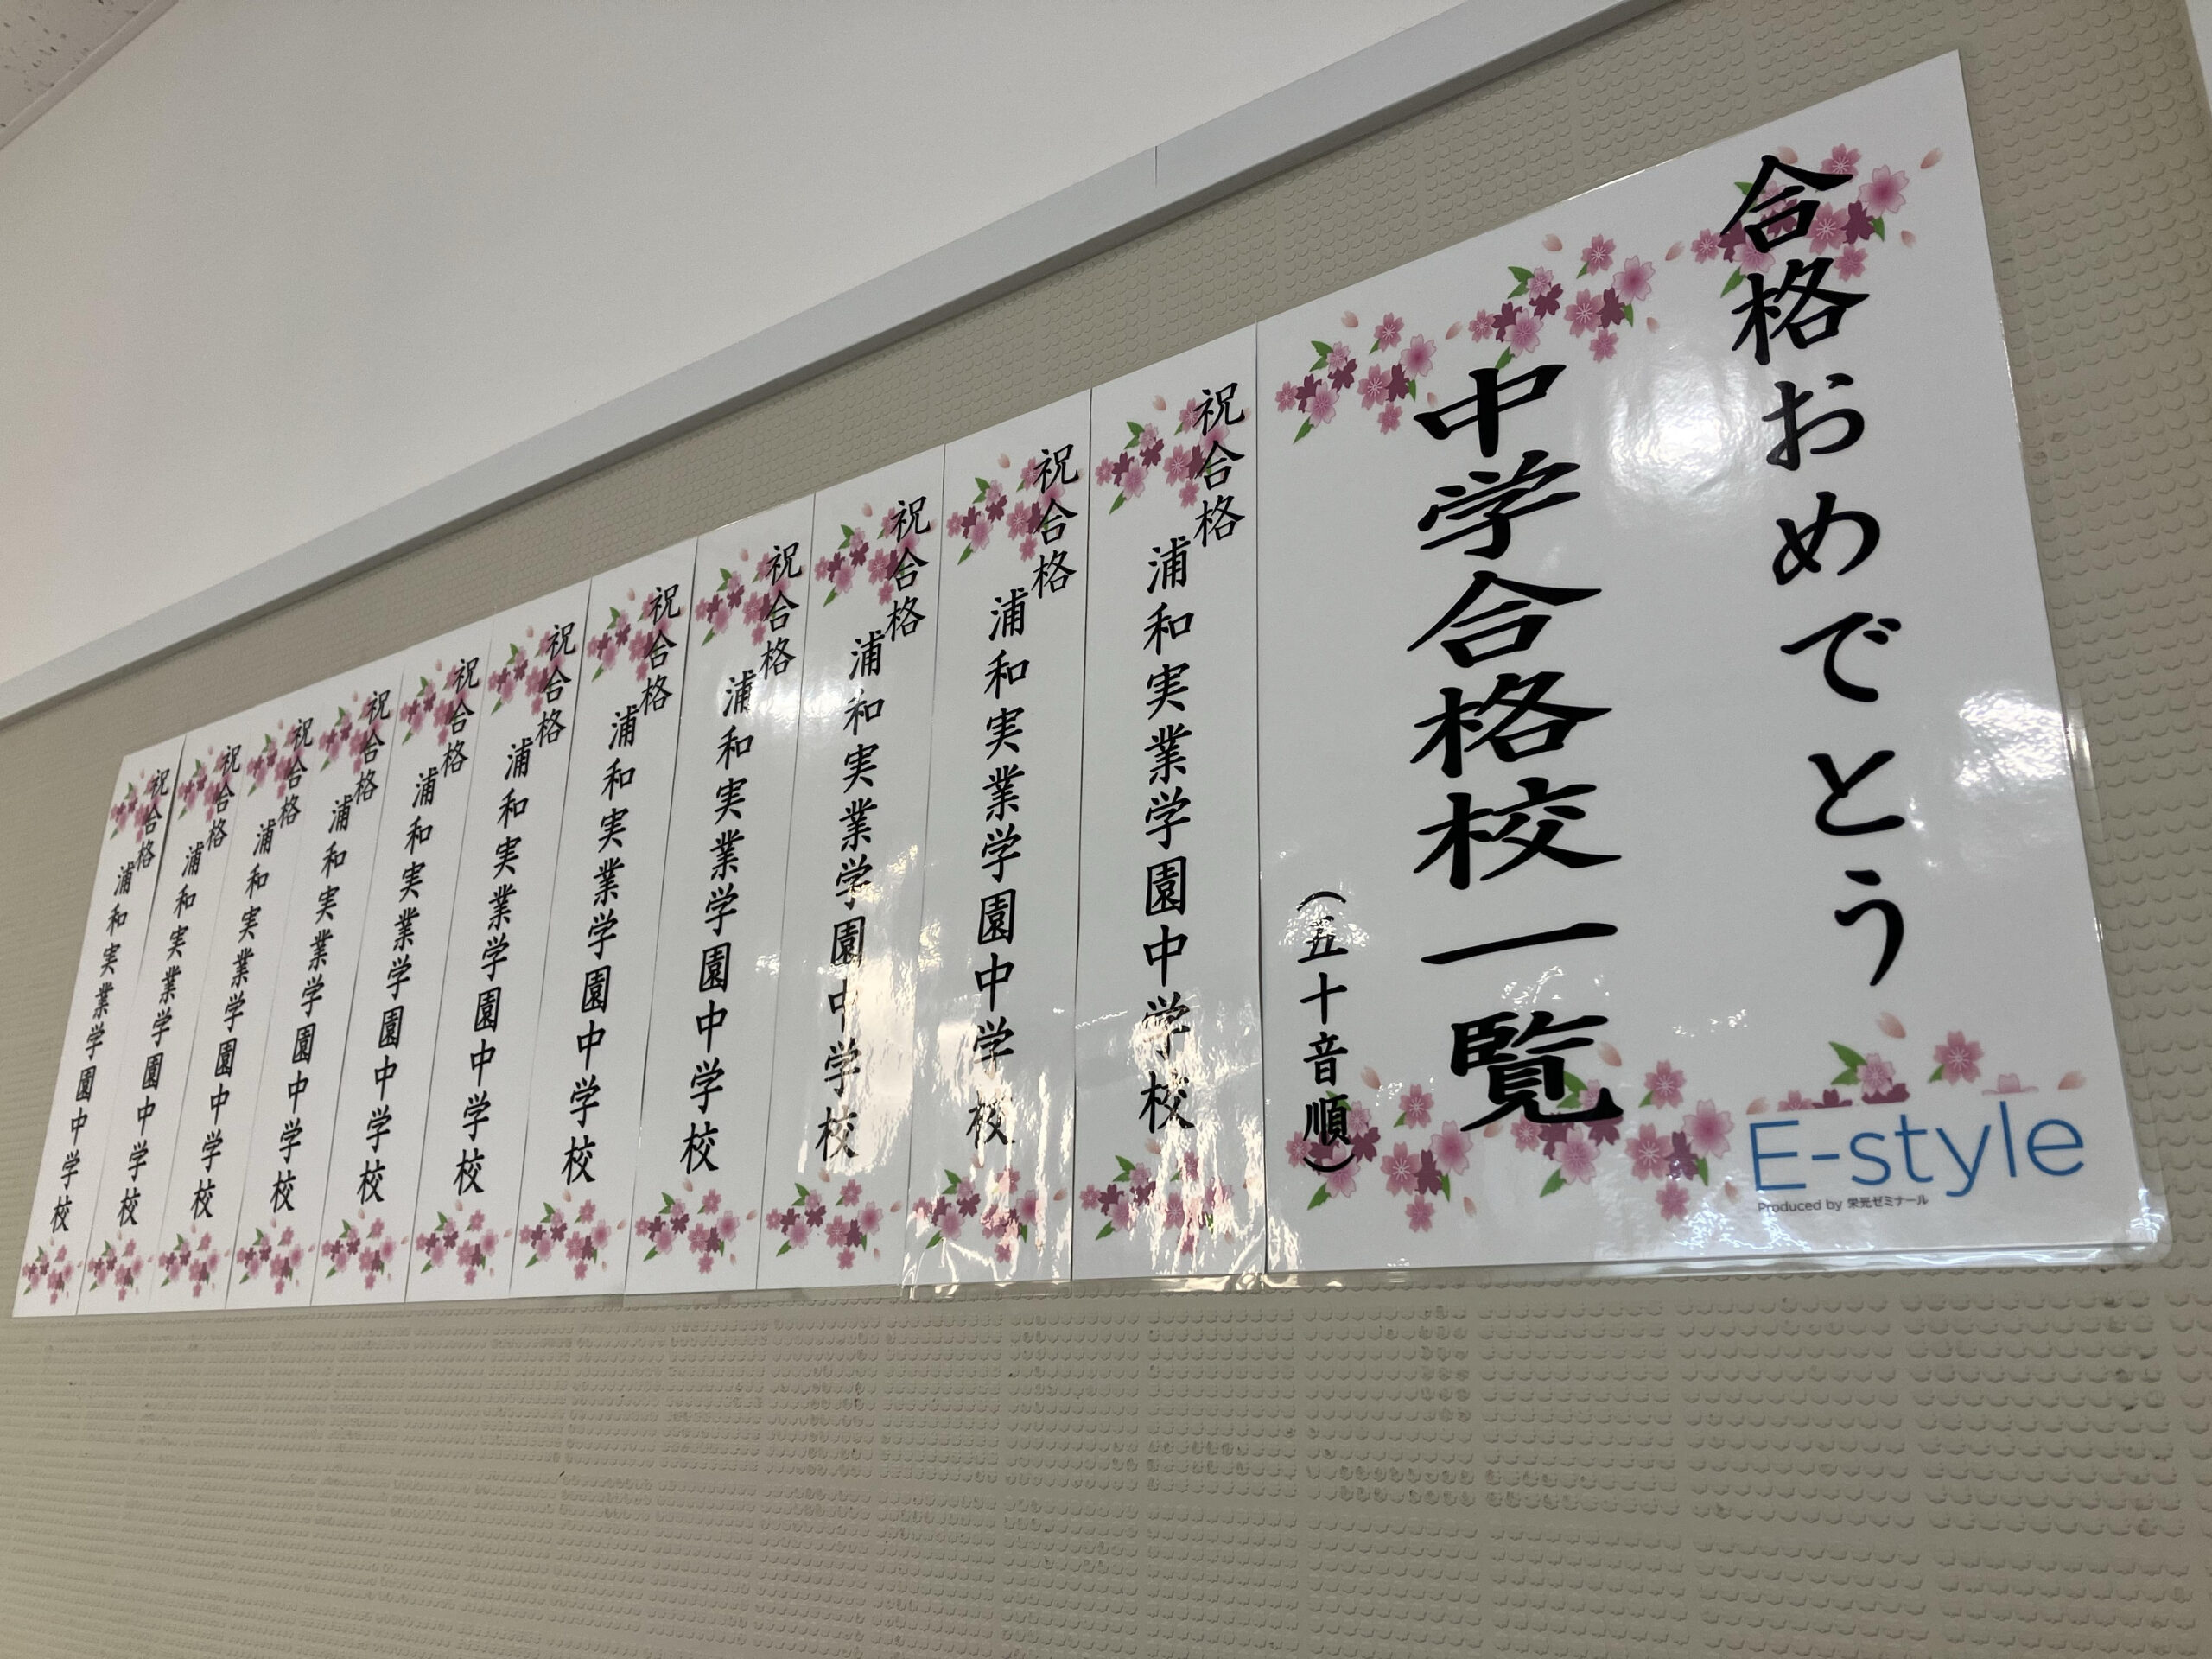 合格おめでとう
中学合格校一覧
(五十音順)
E-style
Produced by 栄光ゼミナール
祝合格
浦和実業学園中学校
祝合格
浦和実業学園中学校
祝合格
浦和実業学園中学校
祝合格
浦和実業学園中学校
祝合格
浦和実業学園中学校
祝合格
浦和実業学園中学校
祝合格
浦和実業学園中学校
祝合格
浦和実業学園中学校
祝合格
浦和実業学園中学校
祝合格
浦和実業学園中学校
祝合格
浦和実業学園中学校